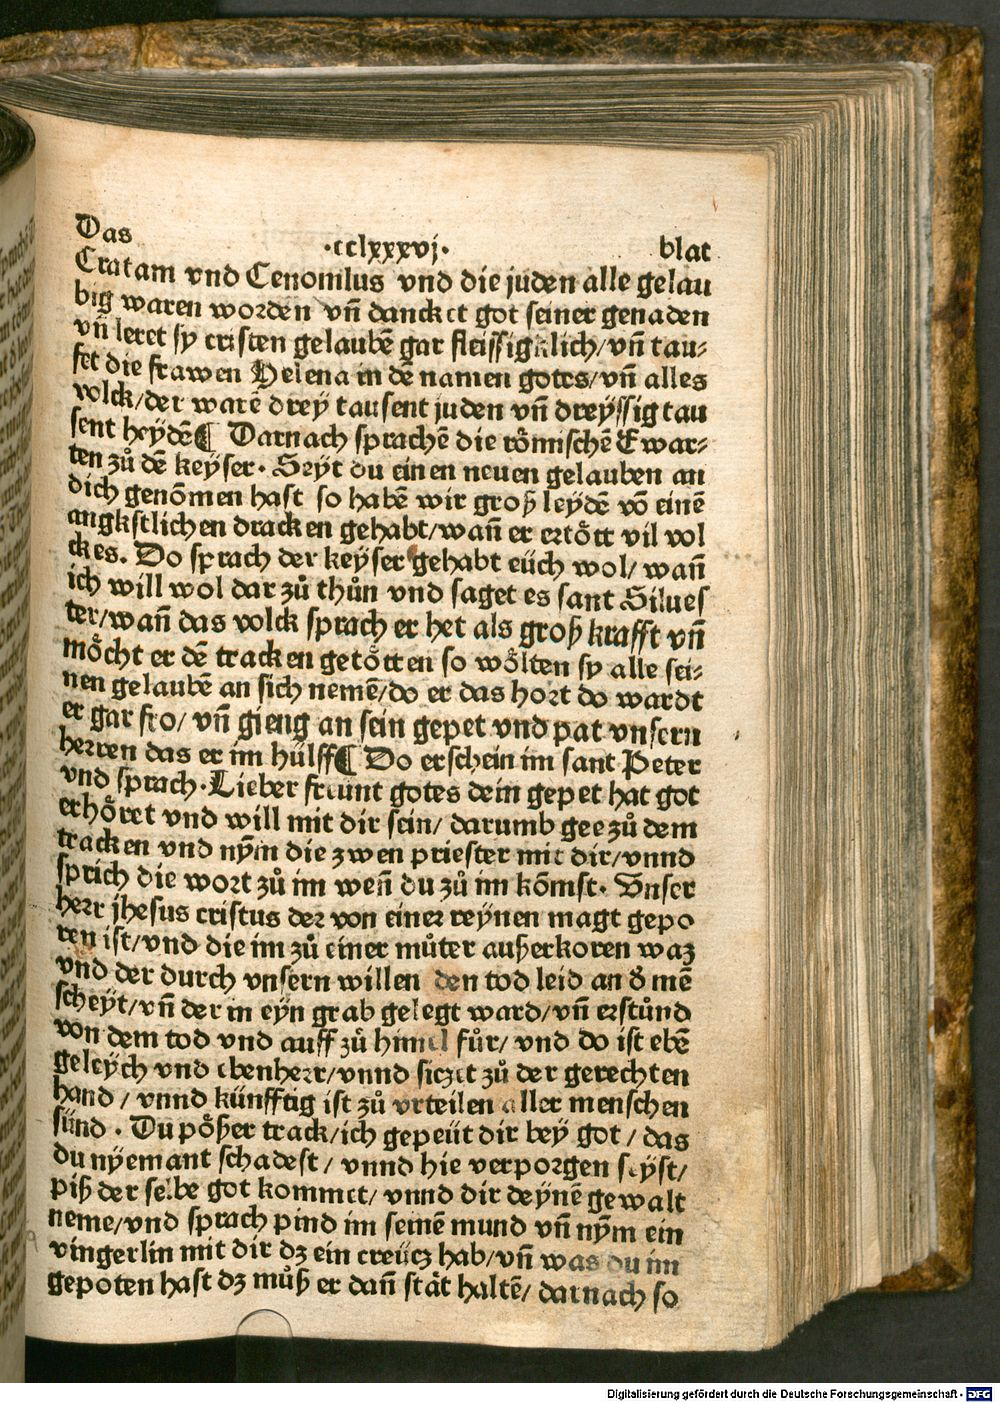 Das
·cclxxxvj·
blat
Cratam vnd Cenomlus vnd die juden alle gelau
big waren worden vñ danckct got seiner genaden
vñ leret sy cristen gelaubē gar fleissigklich/vñ tau⸗
fet die frawen Helena in dē namen gotes/vñ alles
volck/der warē dreÿ tausent juden vñ dreÿssig tau
sent heÿdē¶ Darnach sprachē die rômischē Ewar⸗
ten zů dē keÿser. Seÿt du einen neuen gelauben an
dich genōmen hast so habē wir groß leydē vō einē
angkstlichen dracken gehabt/wañ er ertôtt vil vol
ckes. Do sprach der keÿser gehabt eüch wol/ wañ
ich will wol dar zů thůn vnd saget es sant Silues
ter/wañ das volck sprach er het als groß krafft vñ
môcht er dē tracken getôtten so wôlten sy alle sei⸗
nen gelaubē an sich nemē/do er das hort do wardt
er gar fro/ vñ gieng an sein gepet vnd pat vnsern
herren das er im hülff¶ Do erschein im sant Peter
vnd sprach. Lieber freunt gotes dein gepet hat got
erhôret vnd will mit dir sein/ darumb gee zů dem
tracken vnd nÿm die zwen priester mit dir/vnnd
sprich die wort zů im weñ du zů im kōmst. Vnser
herr jhesus cristus der von einer reÿnen magt gepo
ren ist/vnd die im zů einer můter außerkoren waz
vnd der durch vnsern willen den tod leid an ð mē
scheÿt/vñ der in eÿn grab gelegt ward/vñ erstůnd
von dem tod vnd auff zů himel fůr/ vnd do ist ebē
geleÿch vnd ebenherr/vnnd siczet zů der gerechten
hand / vnnd künfftig ist zů vrteilen aller menschen
sünd . Du pôßer track/ich gepeüt dir bey got / das
du nÿemant schadest / vnnd hie verporgen seÿst/
piß der selbe got kommet/ vnnd dir deÿnē gewalt
neme/vnd sprach pind im seinē mund vñ nÿm ein
vingerlin mit dir dz ein creücz hab/vñ was du im
gepoten hast dz můß er dañ stât haltē/ darnach so
Digitalisierung gefördert durch die Deutsche Forschungsgemeinschaft - DFG